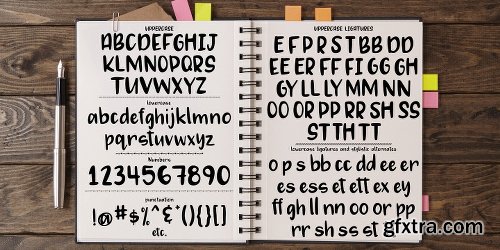 UPPERCASE
ABCDEFGHIJ
KLMNOPQRS
TUVWXYZ
lowercase
abcdefghijklmno
pqrstuvwxyz
Numbers
1234567890
punctuation
!@#$%^&*(){}[]
etc.
UPPERCASE LIGATURES
E F P R S T BB DD
EE ER FF FI GG GH
GY LL LY MM NN
OO OR PP RR SH SS
STT TH TT
lowercase ligatures and stylistic alternates
o p s bb cc dd ee er
es ess et ett ex ey
ff gh ll nn oo or pp
or rr sh ss tt
gfxtra.com